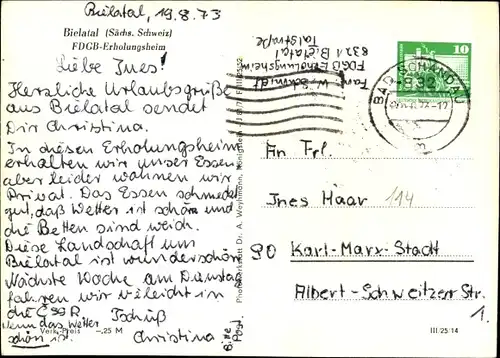 Bielatal, 19.8.73
Bielatal (Sächs. Schweiz)
FDGB-Erholungsheim
Liebe Ines!
Herzliche Urlaubsgrüße
aus Bielatal sendet
Dir Christina.
In diesen Erholungsheim
erhalten wir unser Essen,
aber leider wohnen wir
Privat. Das Essen schmeckt
gut, daß Wetter ist schön und
die Betten sind weich.
Diese Landschaft um
Bielatal ist wunderschön
Nächste Woche am Dienstag
fahren wir vileicht in
die ČSSR
wenn das Wetter
schön ist.
Tschüß
Christina
Verk.-Preis -,25 M
Bitte
Post.
Fam.
W. Schmidt
FDGB-Erholungsheim
8321 Bielatal
Talstraße
10
BAD SCHANDAU
832
An Frl.
Ines Haar 114
90 Karl-Marx-Stadt
Albert-Schweitzer Str.
1.
III/25/14